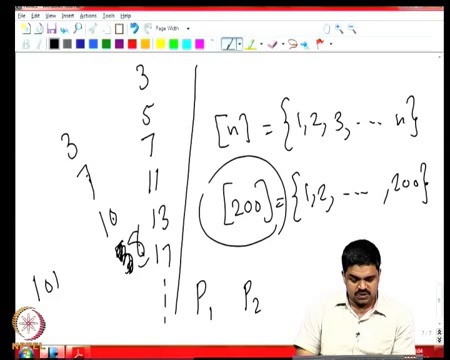 File Edit View Insert Actions Tools Help
Page Width
3
5
3 7
7 11
10 13
17
101
[n] = {1, 2, 3, ... n}
[200] = {1, 2, ..., 200}
P1 P2